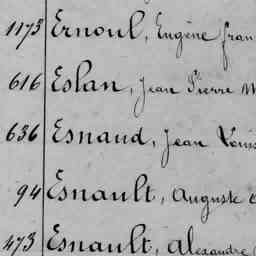 1173 Ernoul, Eugène fran
616 Eslan, Jean Pierre M
636 Esnaud, Jean Louis
94 Esnault, Auguste
473 Esnault, Alexandre